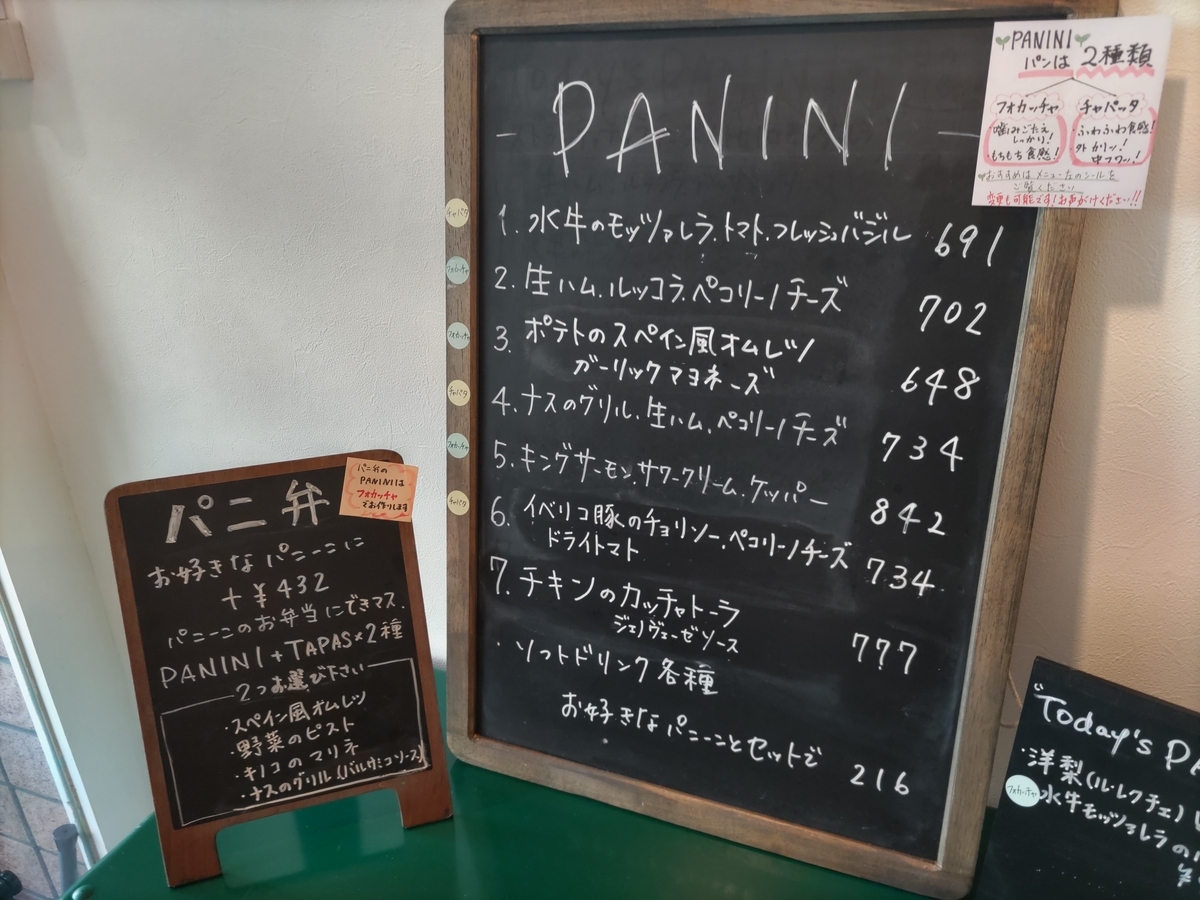 PANINI
パンは 2種類
フォカッチャ
噛みごたえ
しっかり!
・もちもち食感!
チャバッタ
・ふわふわ食感!
・外カリッ!
中フワッ!
おすすめはメニュー左のシールを
ご覧ください
変更も可能です!お声がけください!!
- PANINI -
チャバタ
1. 水牛のモッツァレラ.トマト.フレッシュバジル 691
フォカッチャ
2. 生ハム.ルッコラ.ペコリーノチーズ 702
フォカッチャ
3. ポテトのスペイン風オムレツ
ガーリックマヨネーズ 648
チャバタ
4. ナスのグリル.生ハム.ペコリーノチーズ 734
フォカッチャ
5. キングサーモン.サワークリーム.ケッパー 842
チャバタ
6. イベリコ豚のチョリソー.ペコリーノチーズ
ドライトマト 734
7. チキンのカッチャトーラ
ジェノヴェーゼソース 777
・ソフトドリンク各種
お好きなパニーニとセットで 216
パニ弁
パニ弁の
PANINIは
フォカッチャ
でお作りします
お好きなパニーニに
+¥432
パニーニのお弁当にできマス.
PANINI+TAPAS×2種
2つお選び下さい
・スペイン風オムレツ
・野菜のピスト
・キノコのマリネ
・ナスのグリル(バルサミコソース)
"Today's PA
・洋梨(ル・レクチェ)
フォカッチャ
水牛モッツァレラの
¥